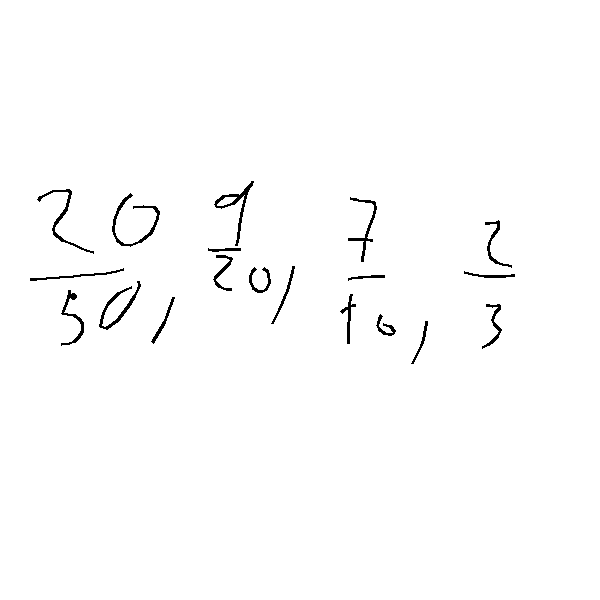 20/50, 9/20, 7/10, 2/3